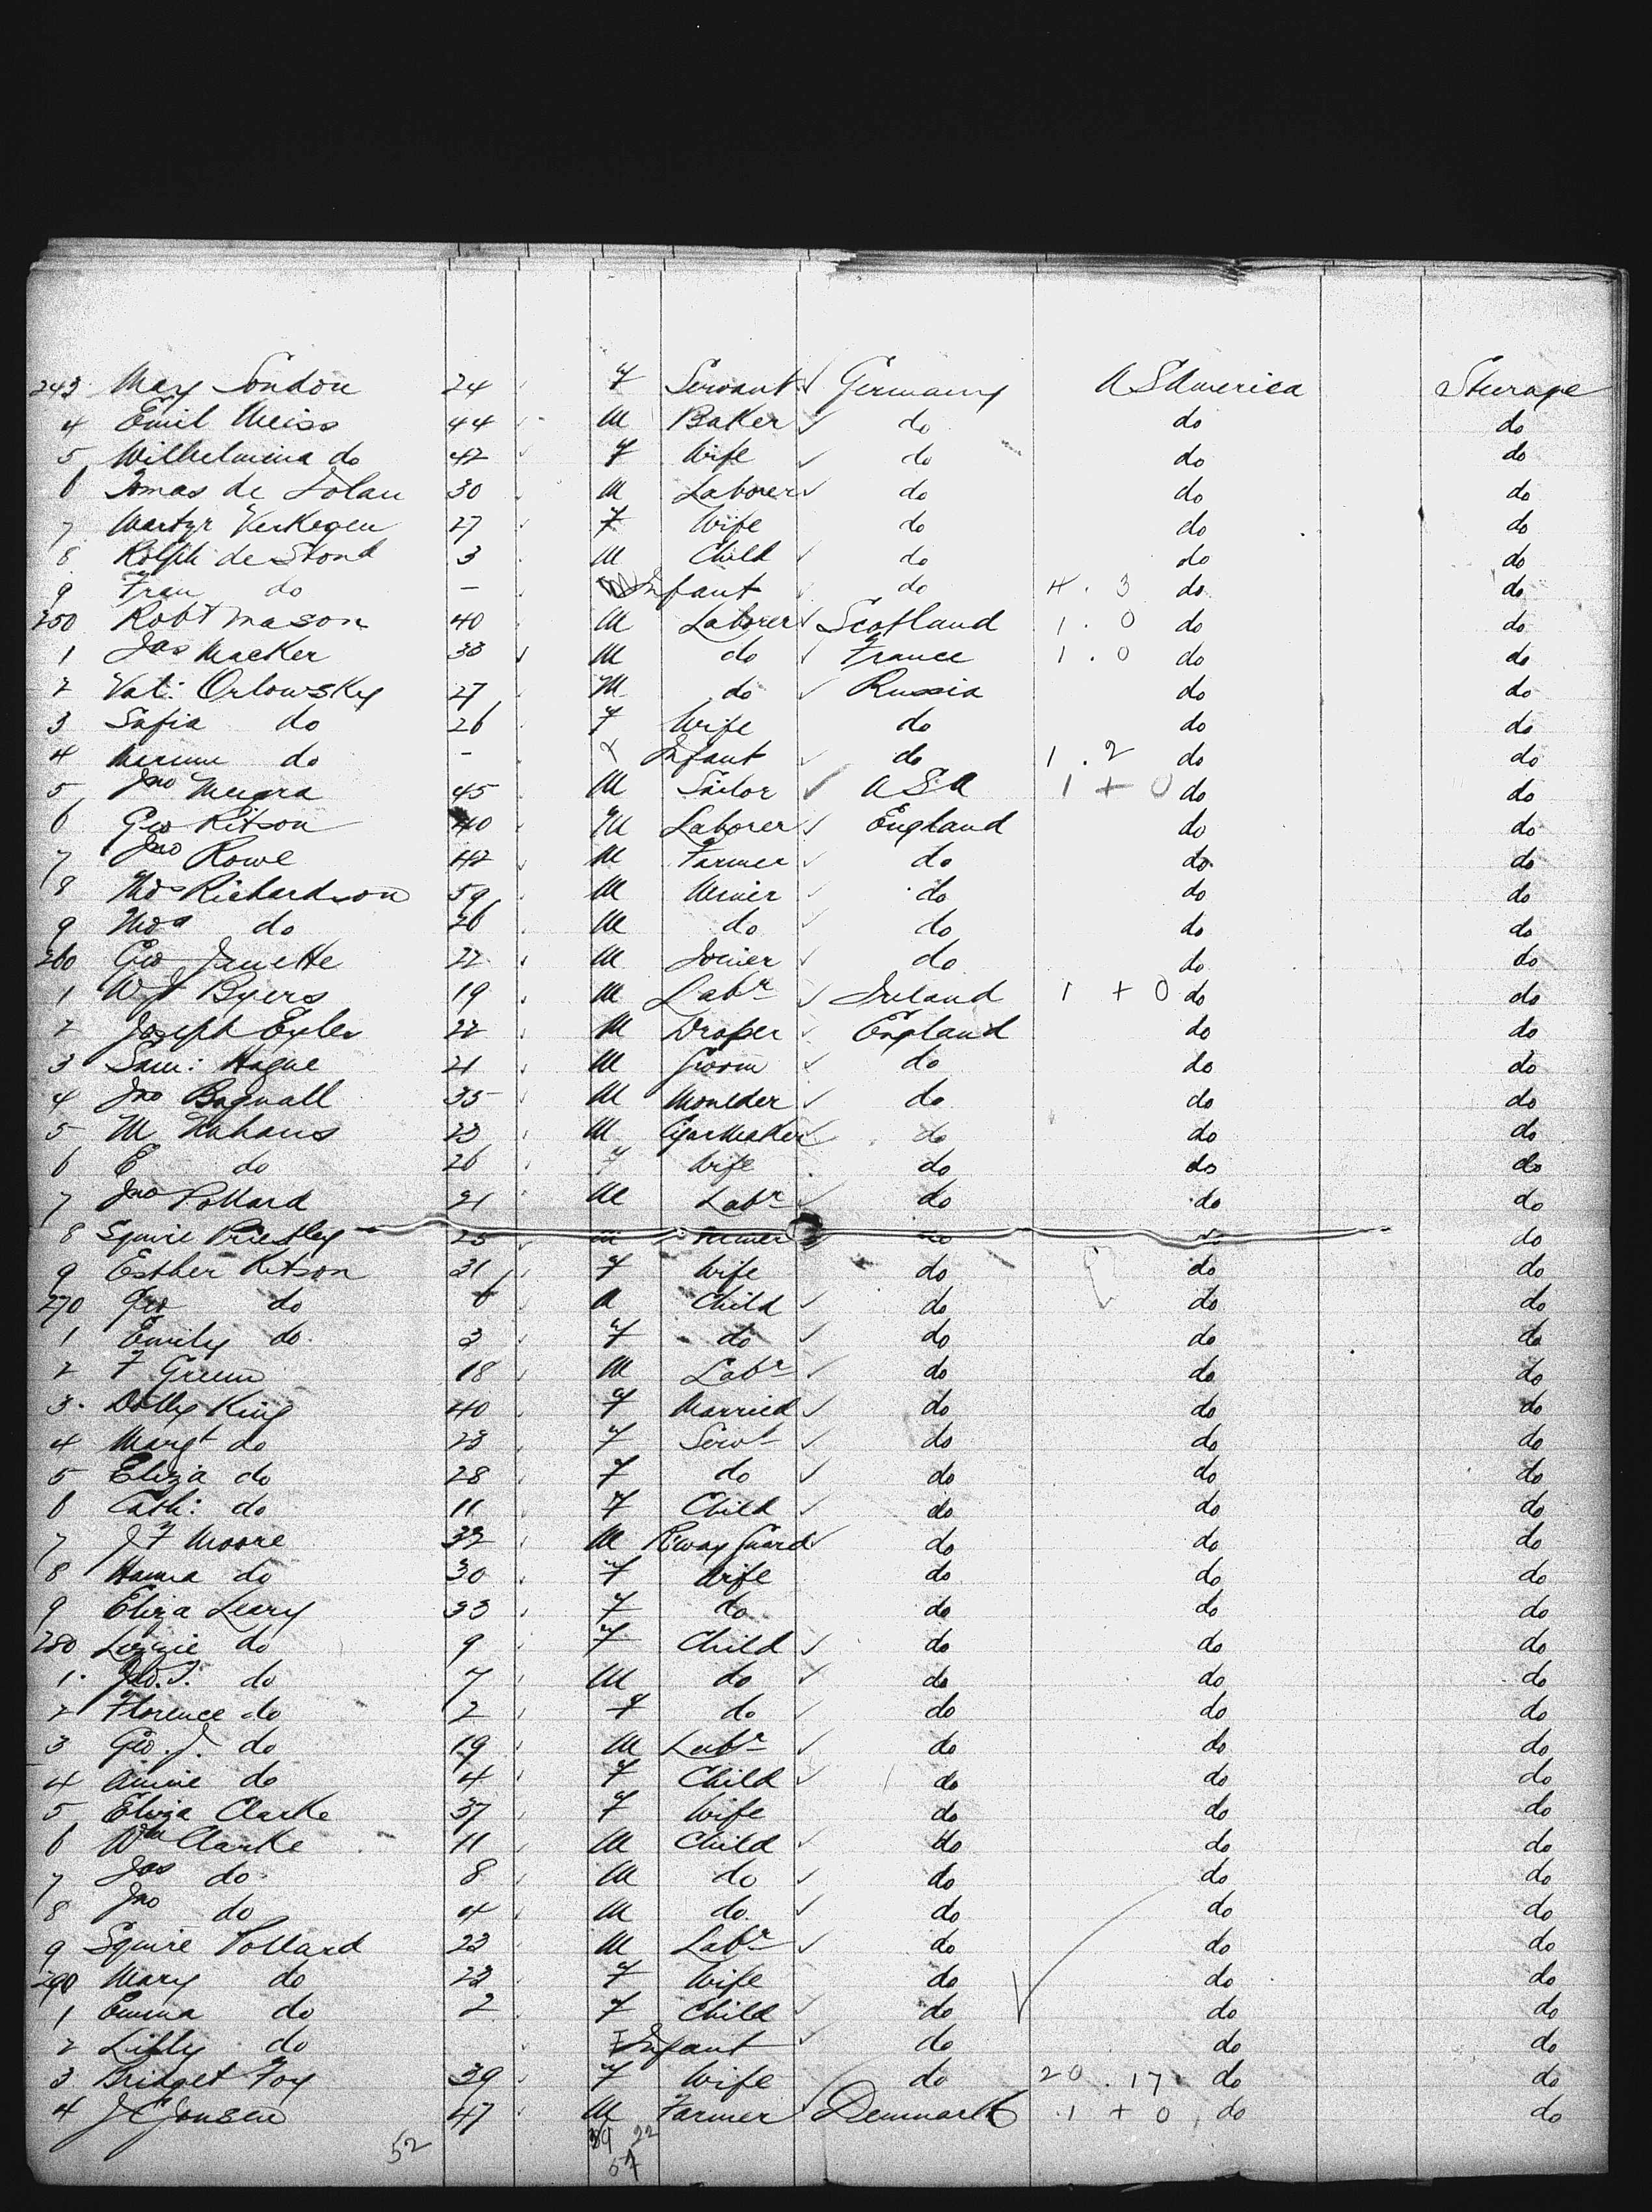 243 May Sondon 24 F Servant Germany U S America Steerage
4 Emil Weiss 44 M Baker do do do
5 Wilhelmina do 42 F Wife do do do
6 Tomas de Lolan 30 M Laborer do do do
7 Martyr Verkegen 27 F Wife do do do
8 Rolph de Stond 3 M Child do do do
9 Frau do - Infant do 4 . 3 do do
250 Robt Mason 40 M Laborer Scotland 1 . 0 do do
1 Jas Macker 38 M do France 1 . 0 do do
2 Vat: Orlowsky 27 M do Russia do do
3 Safia do 26 F Wife do do do
4 do - Infant do 1 . 2 do do
5 Jno Meagra 45 M Sailor U S A 1 + 0 do do
6 Geo Kitson 40 M Laborer England do do
7 Jno Rowe 42 M Farmer do do do
8 Thos Richardson 59 M Miner do do do
9 Thos do 26 M do do do do
260 Geo Jenette 22 M Joiner do do do
1 W J Byers 19 M Labr Ireland 1 + 0 do do
2 Joseph Eyles 22 M Draper England do do
3 Sam: Hague 21 M Groom do do do
4 Jno Bagnall 35 M Moulder do do do
5 M Nahans 23 M CigarMaker do do do
6 E do 26 F Wife do do do
7 Jno Pollard 21 M Labr do do do
8 Squire Priestley 25 M do do do
9 Esther Kitson 31 F Wife do do do
270 Geo do 6 M Child do do do
1 Emily do 3 F do do do do
2 F Green 18 M Labr do do do
3 Dolly King 40 F Married do do do
4 Margt do 23 F Servt do do do
5 Eliza do 28 F do do do do
6 Cath: do 11 F Child do do do
7 J F Moore 32 M Rway Guard do do do
8 Hanna do 30 F Wife do do do
9 Eliza Leary 33 F do do do do
280 Lizzie do 9 F Child do do do
1 Jno. T. do 7 M do do do do
2 Florence do 2 F do do do do
3 Geo. J. do 19 M Labr do do do
4 Annie do 4 F Child do do do
5 Eliza Clarke 37 F Wife do do do
6 Wm Clarke 11 M Child do do do
7 Jas do 8 M do do do do
8 Jno do 4 M do do do do
9 Squire Pollard 23 M Labr do do do
290 Mary do 23 F Wife do do do
1 Emma do 2 F Child do do do
2 Lilly do F Infant do do do
3 Bridget Foy 39 F Wife do 20 . 17 do do
4 J C Jonsen 47 M Farmer Denmark 1 + 0 do do
52 22